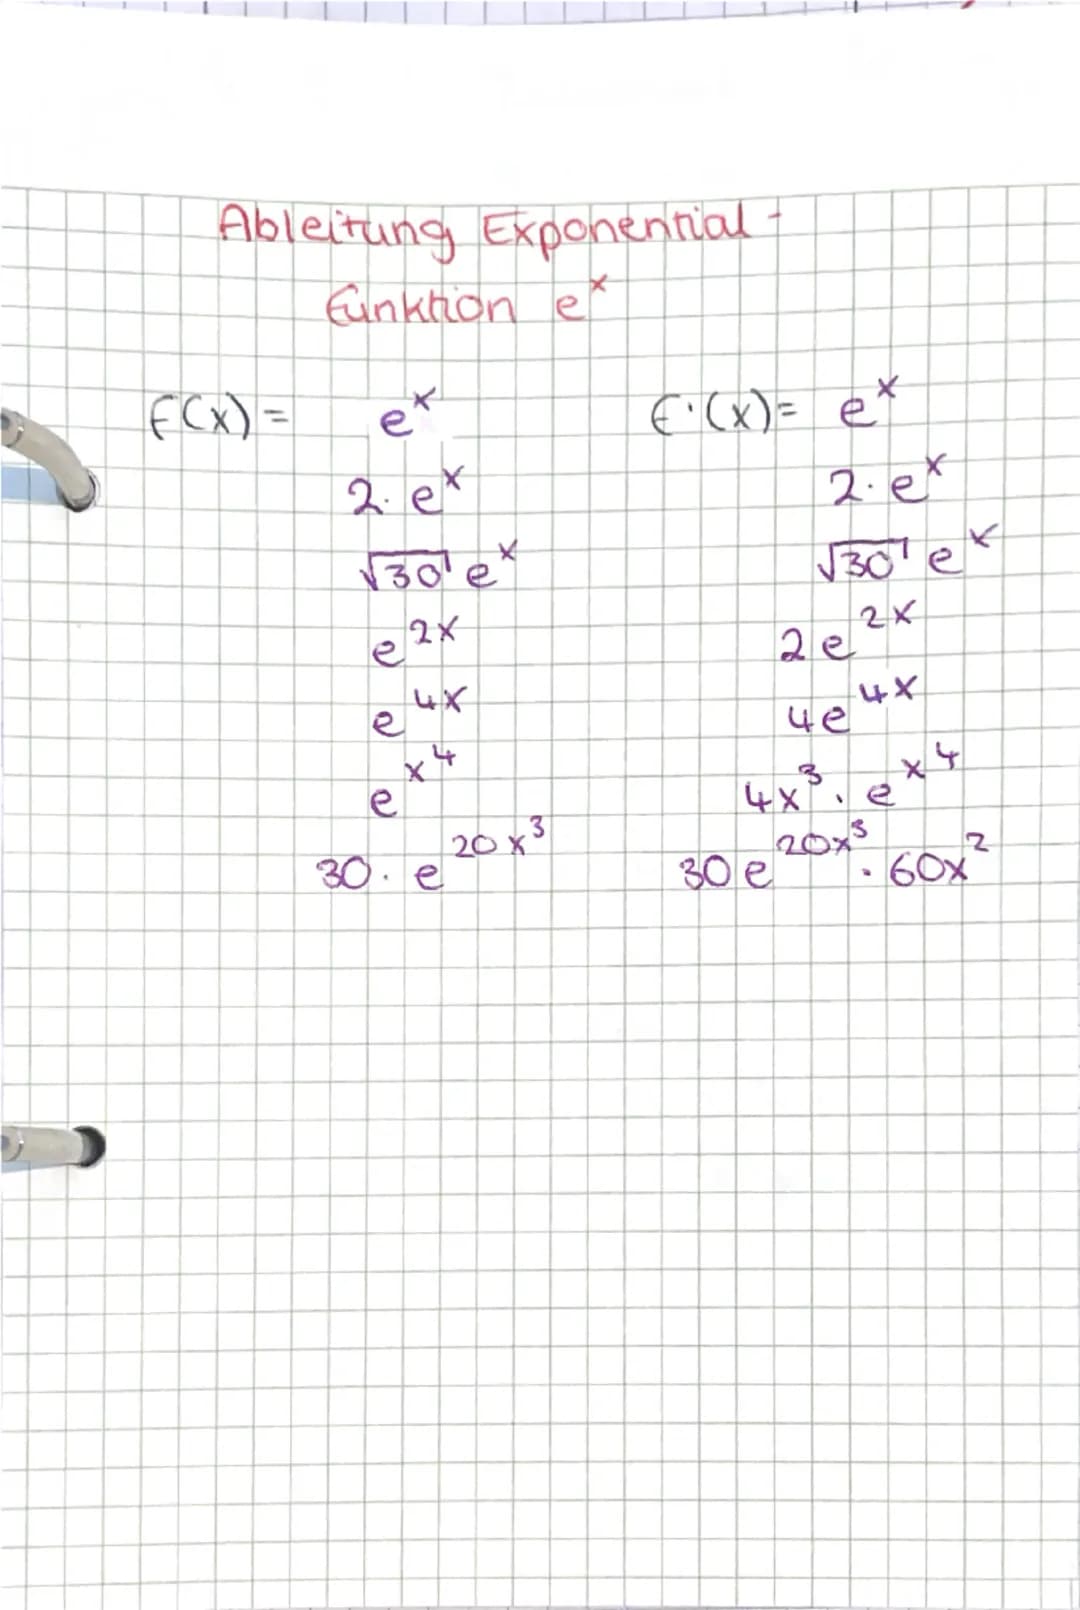 Ableitung Exponential-
funktion eˣ
f(x) = eˣ f'(x) = eˣ
2 · eˣ 2 · eˣ
√30 eˣ √30 eˣ
e^2x 2e^2x
e^4x 4e^4x
e^x⁴ 4x³ · e^x⁴
30 · e^20x³ 30e^20x³ · 60x²